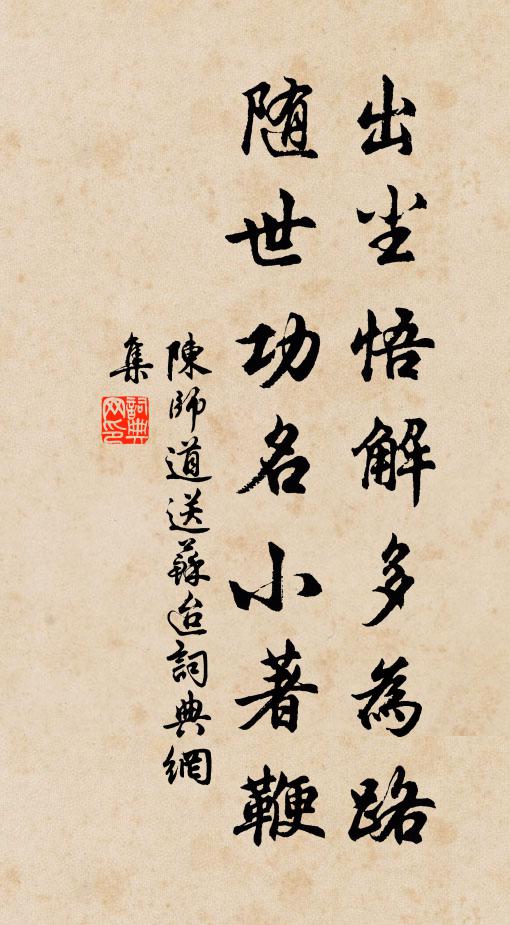 出尘悟解多為路
随世功名小著鞭
陳師道送蘇迨詞典網
集
詞典網印